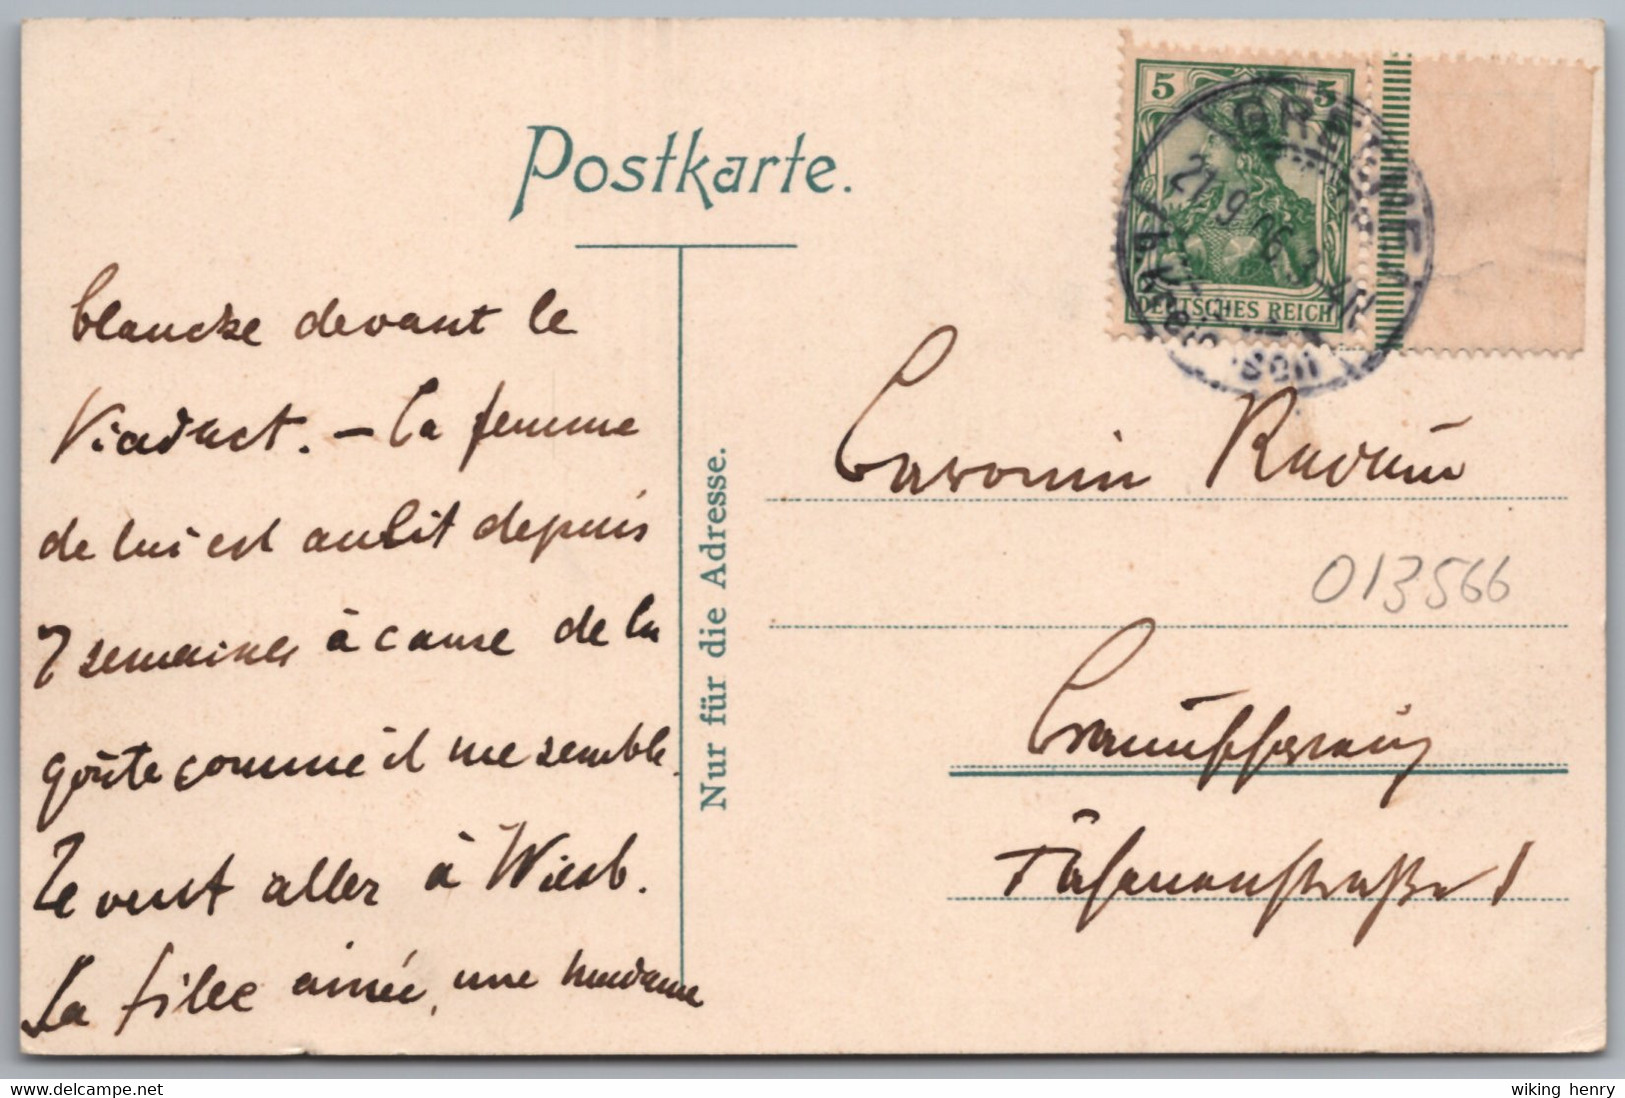 Postkarte.
blanche devant le
Viaduct. – La femme
de lui est au lit depuis
7 semaines à cause de la
goûte comme il me semble.
Ze veut aller à Wiesb.
La fille ainée, une madame
Nur für die Adresse.
5 5
DEUTSCHES REICH
21.9.06.3
Braunschweig
Fasanenstraße 1
013566
delcampe.net
wiking henry